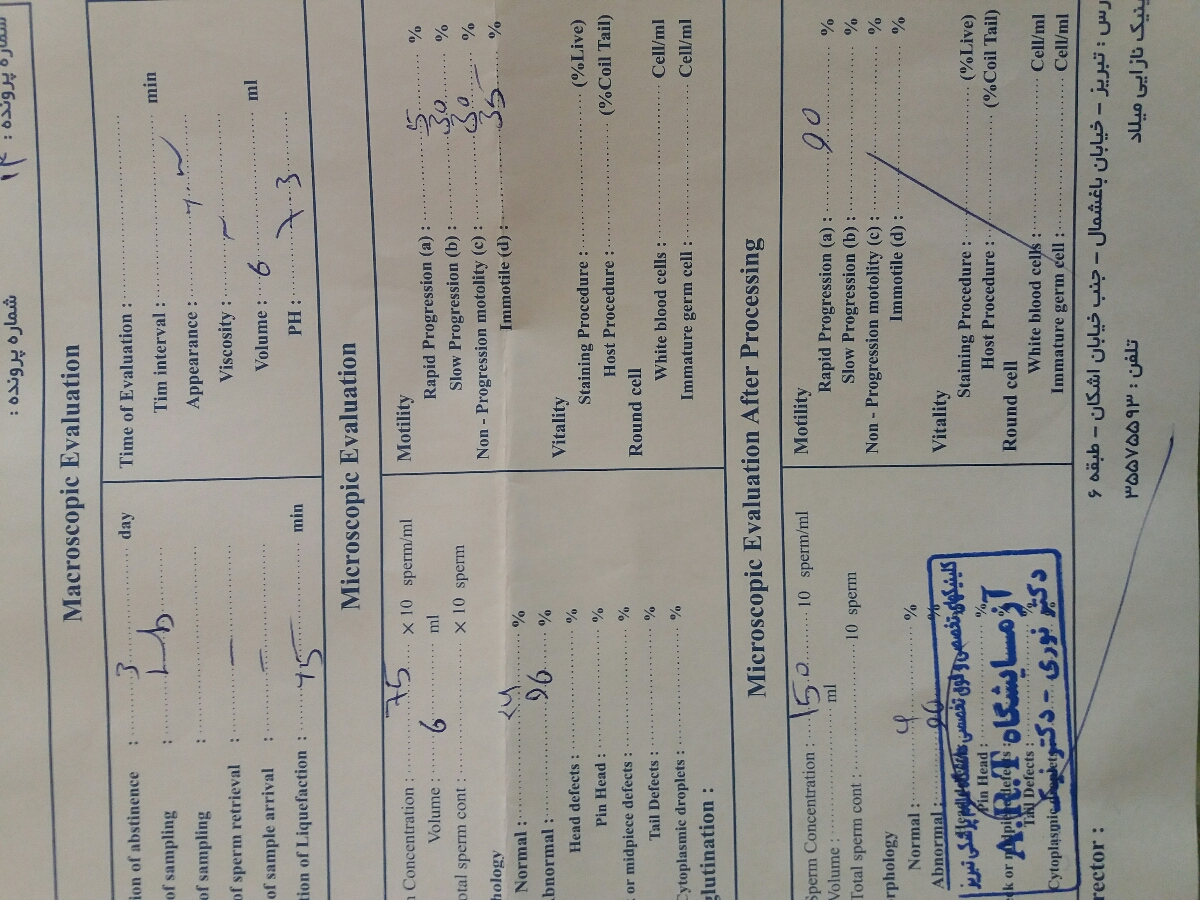 شماره پرونده :
شماره پرونده : ۱۴
Macroscopic Evaluation
ion of abstinence : 3 day
of sampling : Lab
of sampling :
of sperm retrieval : –
of sample arrival : –
tion of Liquefaction : 45 min
Time of Evaluation :
Tim interval : min
Appearance :
Viscosity :
Volume : 6 ml
PH : 7.3
Microscopic Evaluation
n Concentration : 75 × 10 sperm/ml
Volume : 6 ml
otal sperm cont : × 10 sperm
phology
Normal : %
bnormal : 96 %
Head defects : %
Pin Head : %
or midpiece defects : %
Tail Defects : %
Cytoplasmic droplets : %
glutination :
Motility
Rapid Progression (a) : 5 %
Slow Progression (b) : 30 %
Non - Progression motolity (c) : 30 %
Immotile (d) : 35 %
Vitality
Staining Procedure : (%Live)
Host Procedure : (%Coil Tail)
Round cell
White blood cells : Cell/ml
Immature germ cell : Cell/ml
Microscopic Evaluation After Processing
Sperm Concentration : 150 10 sperm/ml
Volume : ml
Total sperm cont : 10 sperm
rphology
Normal : 4 %
Abnormal : 96 %
Pin Head : %
ck or midpiece defects %
Tail Defects : %
Cytoplasmic droplets
Motility
Rapid Progression (a) : 90 %
Slow Progression (b) : %
Non - Progression motolity (c) : %
Immotile (d) : %
Vitality
Staining Procedure : (%Live)
Host Procedure : (%Coil Tail)
Round cell
White blood cells : Cell/ml
Immature germ cell : Cell/ml
آزمایشگاه A.R.T
دکتر نوری - دکتر نیک
rector :
رس : تبریز - خیابان باغشمال - جنب خیابان اشکان - طبقه ۶
تلفن : ۳۵۵۷۵۵۹۳
ینیک نازایی میلاد